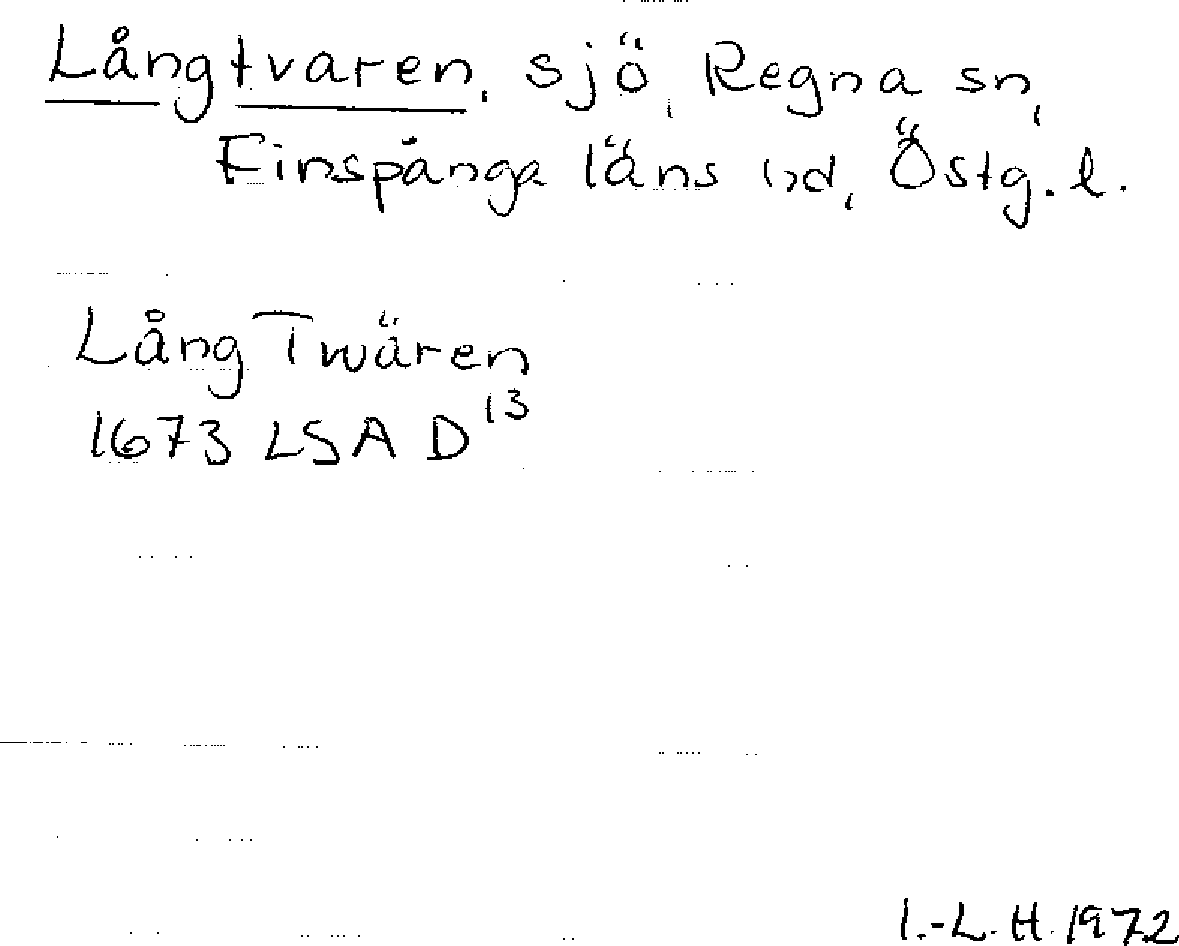 Långtvaren, sjö, Regna sn,
Finspånga läns hd, Östg. l.
Lång Twären
1673 LSA D¹³
I.-L. H. 1972